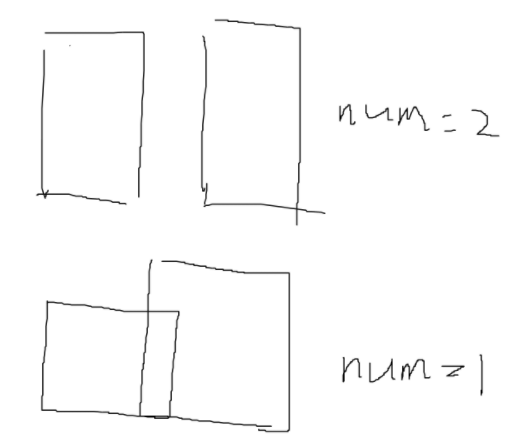 num = 2
num = 1